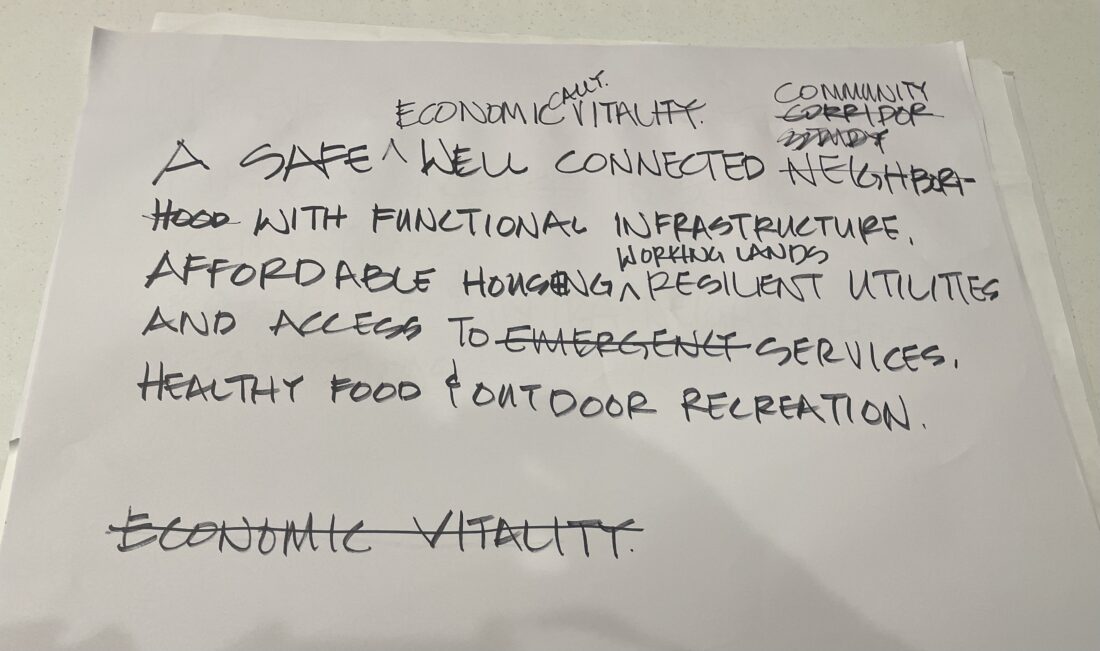 COMMUNITY
ECONOMICALLY. VITALITY. CORRIDOR
STUDY
A SAFE ^ WELL CONNECTED NEIGHBOR-
HOOD WITH FUNCTIONAL INFRASTRUCTURE,
WORKING LANDS
AFFORDABLE HOUSING ^ RESILIENT UTILITIES
AND ACCESS TO EMERGENCY SERVICES,
HEALTHY FOOD & OUTDOOR RECREATION.
ECONOMIC VITALITY.